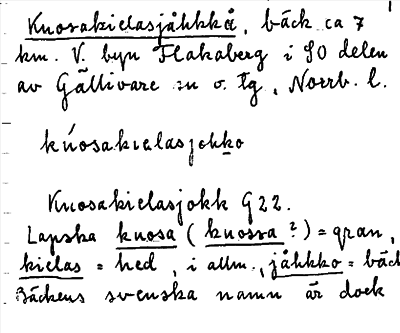 Knosakielasjåhkkå, bäck ca 7
km. V. byn Flakaberg i SO delen
av Gällivare sn o. tg, Norrb. l.
knosakielasjohko
Knosakielasjokk G22.
Lapska knosa (knossa?) = gran,
kielas = hed, i allm., jåhkko = bäck
Bäckens svenska namn är dock